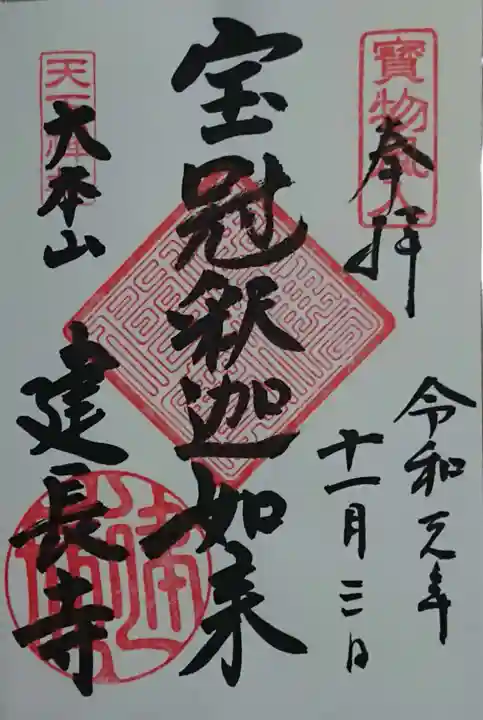 奉拝
令和元年
十一月三日
宝冠釈迦如来
大本山
建長寺
寳物風入
天下禅林